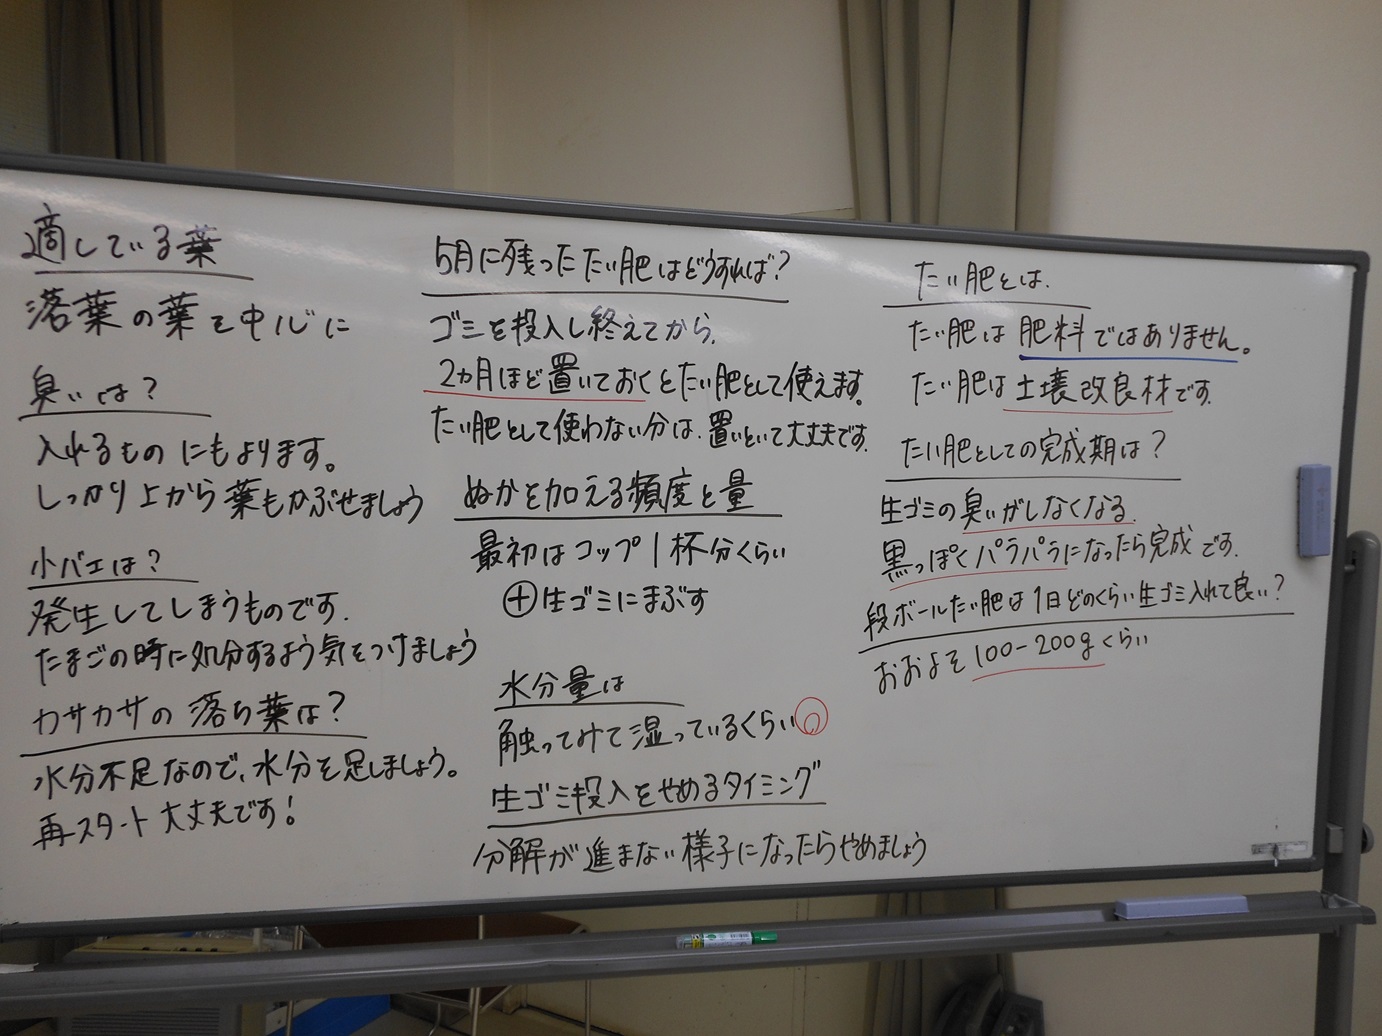 適している葉
落葉の葉を中心に
臭いは？
入れるものにもよります。
しっかり上から葉もかぶせましょう
小バエは？
発生してしまうものです.
たまごの時に処分するよう気をつけましょう
カサカサの落ち葉は？
水分不足なので、水分を足しましょう。
再スタート大丈夫です！
5月に残ったたい肥はどうすれば？
ゴミを投入し終えてから.
2カ月ほど置いておくとたい肥として使えます.
たい肥として使わない分は.置いといて大丈夫です.
ぬかを加える頻度と量
最初はコップ1杯分くらい
⊕生ゴミにまぶす
水分量は
触ってみて湿っているくらい
生ゴミ投入をやめるタイミング
分解が進まない様子になったらやめましょう
たい肥とは.
たい肥は肥料ではありません。
たい肥は土壌改良材です.
たい肥としての完成期は？
生ゴミの臭いがしなくなる.
黒っぽくパラパラになったら完成です.
段ボールたい肥は1日どのくらい生ゴミ入れて良い？
おおよそ100-200gくらい